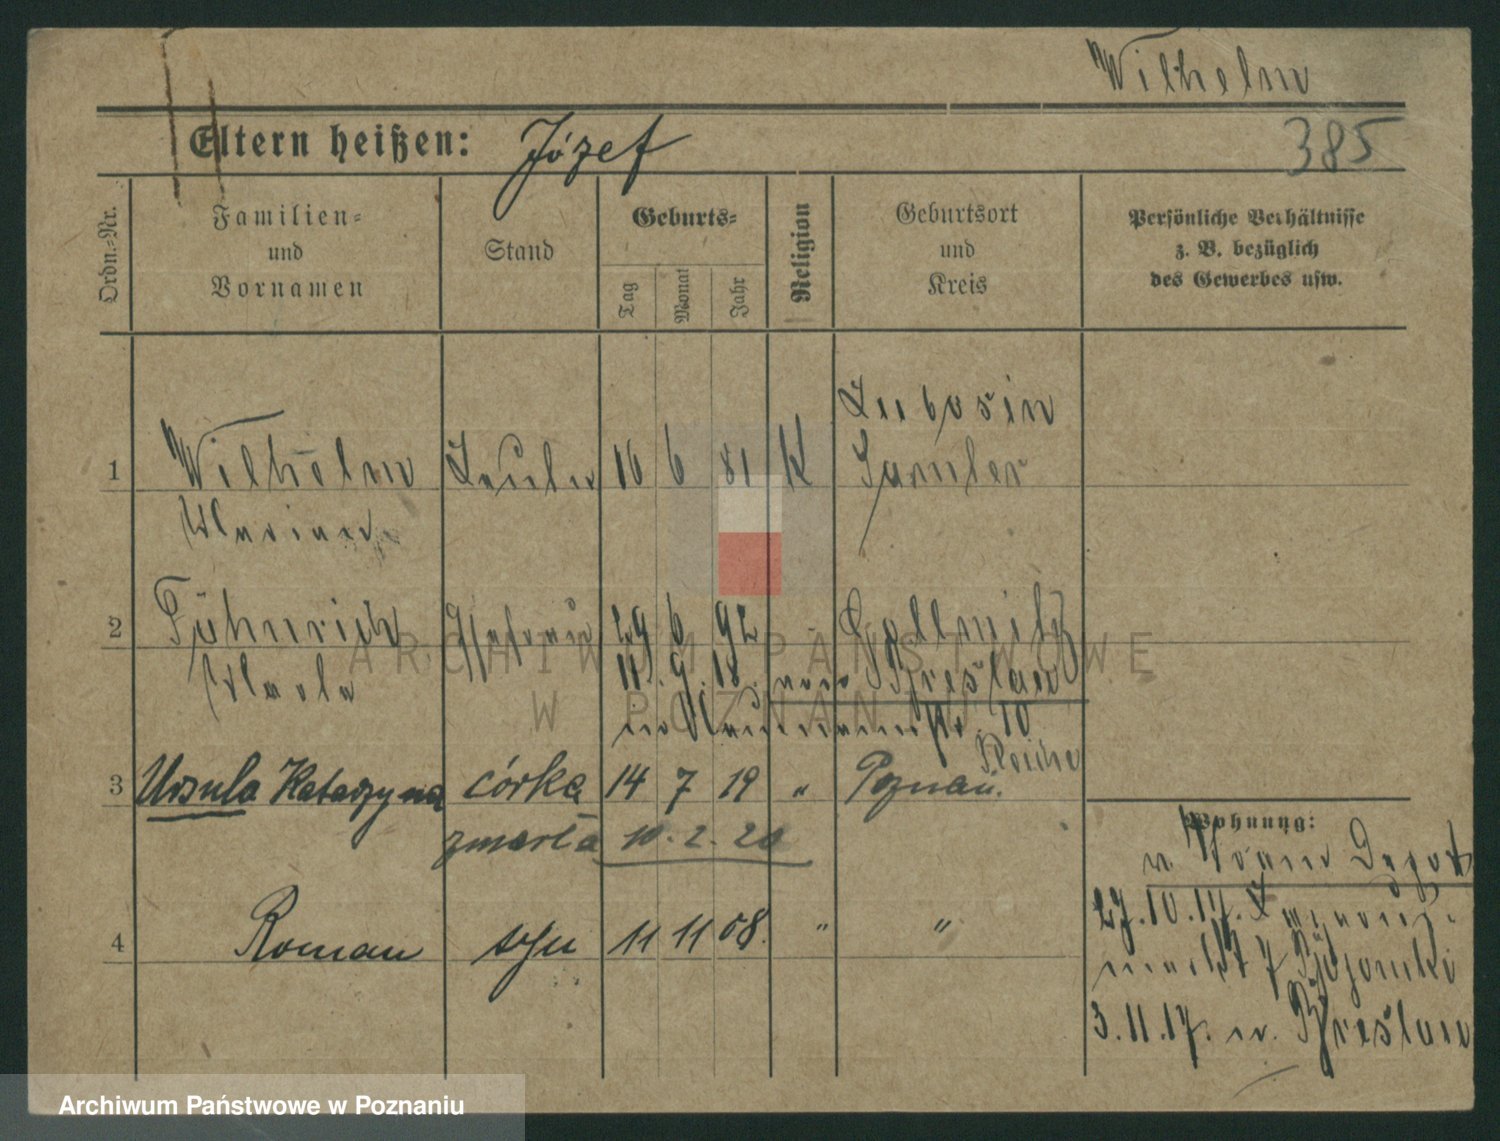 Wilhelm
Eltern heißen: Józef
385
Ordn.-Nr.
Familien-
und
Vornamen
Stand
Geburts-
Tag
Monat
Jahr
Religion
Geburtsort
und
Kreis
Persönliche Verhältnisse
z. B. bezüglich
des Gewerbes usw.
Lubosin
1 Wilhelm 16 6 81 K Samter
Maryan
2 Fähnrich Ehefrau 29 6 92 Gollmitz
11. 9. 18. Breslau
in 10
3 Urszula Katarzyna córka 14 7 19 " Poznań.
zmarła 10. 2. 20
4 Roman syn 11 11 08. " "
Wohnung:
n.
27. 10. 17.
markt 7
3. 11. 17. n. Breslau
ARCHIWUM PAŃSTWOWE
W POZNANIU
Archiwum Państwowe w Poznaniu